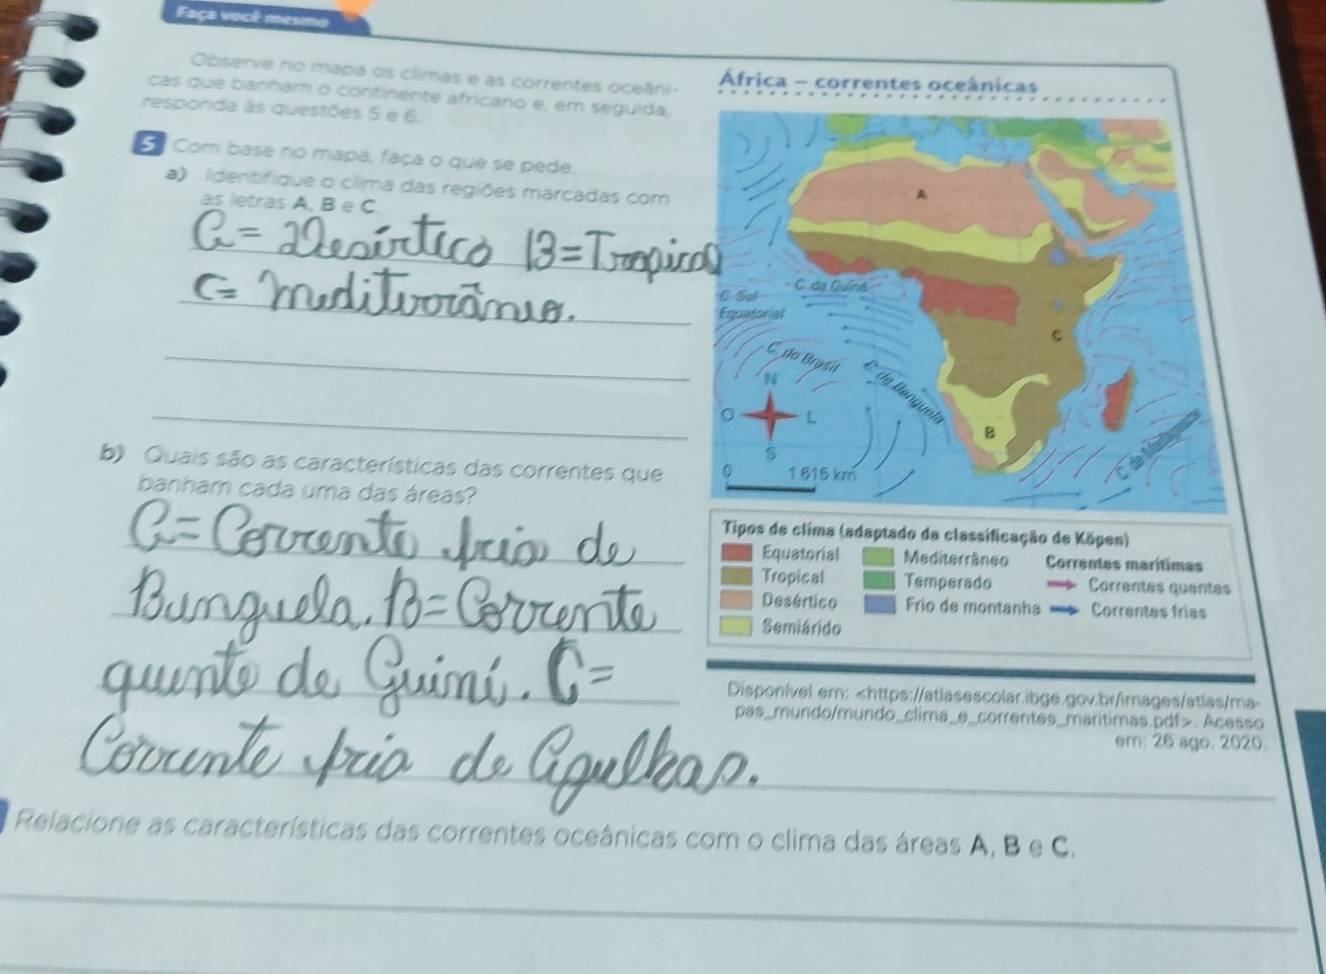 Faça você mesmo
Observe no mapa os climas e as correntes oceâni-
cas que banham o continente africano e, em seguida,
responda às questões 5 e 6.
5 Com base no mapa, faça o que se pede.
a) Identifique o clima das regiões marcadas com
as letras A, B e C.
a = Desértico B = Tropical
C = Mediterrâneo.
b) Quais são as características das correntes que
banham cada uma das áreas?
a = Corrente fria de
Bunguela. B = Corrente
quente de Guiné. C =
Corrente fria de Agulhas.
Relacione as características das correntes oceânicas com o clima das áreas A, B e C.
África – correntes oceânicas
A
C. da Guiné
C. Sul
Equatorial
C
C. do Brasil
C. de Benguela
N
O L
S
B
C. de
0 1 615 km
Tipos de clima (adaptado da classificação de Köpen)
Equatorial Mediterrâneo Correntes marítimas
Tropical Temperado Correntes quentes
Desértico Frio de montanha Correntes frias
Semiárido
Disponível em: <https://atlasescolar.ibge.gov.br/images/atlas/ma-
pas_mundo/mundo_clima_e_correntes_maritimas.pdf>. Acesso
em: 26 ago. 2020.